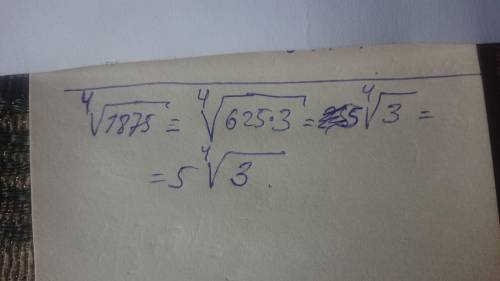 ⁴√1875 = ⁴√625·3 = 5 ⁴√3 =
= 5 ⁴√3.